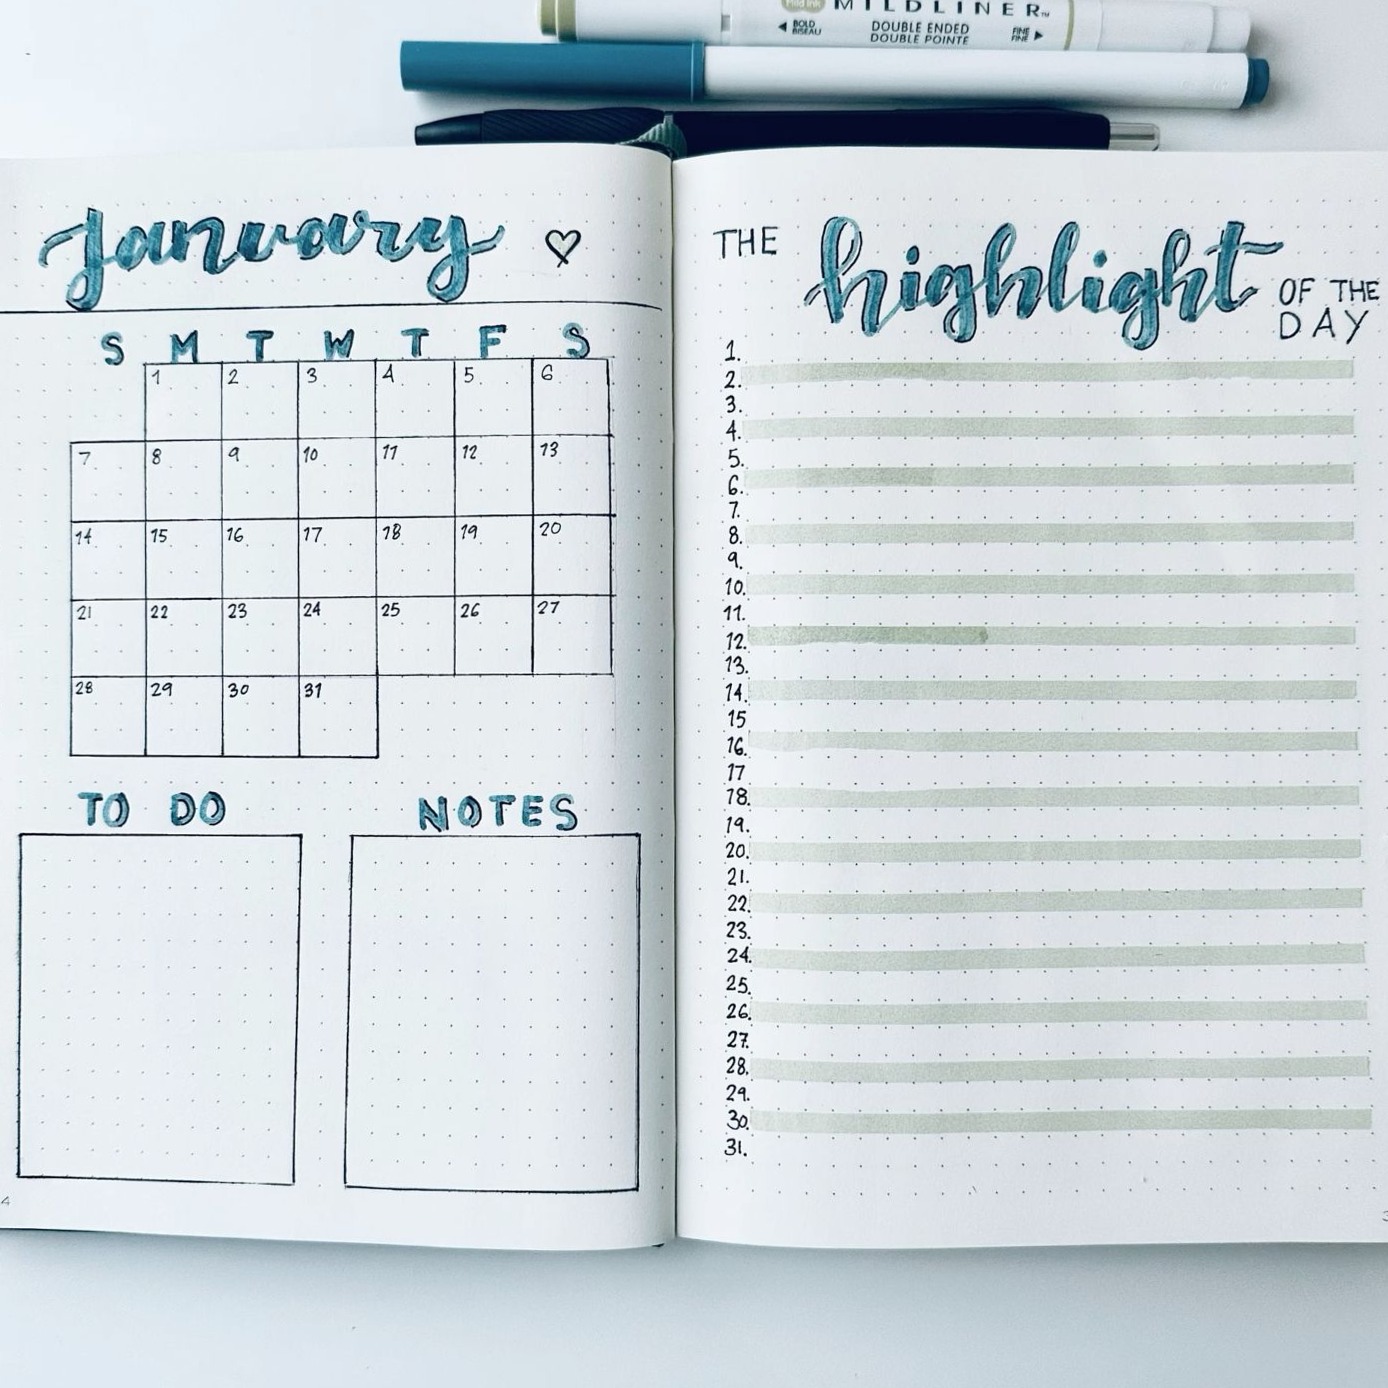 MILDLINER™
BOLD
BISEAU
DOUBLE ENDED
DOUBLE POINTE
FINE
FINE
January
S M T W T F S
1 2 3 4 5. 6
7 8 9 10 11 12 13
14 15 16 17 18 19 20
21 22 23 24 25 26 27
28 29 30 31
TO DO
NOTES
4
THE highlight OF THE
DAY
1.
2.
3.
4.
5.
6.
7.
8.
9.
10.
11.
12.
13.
14.
15
16.
17
18.
19.
20.
21.
22.
23.
24.
25.
26.
27.
28.
29.
30.
31.